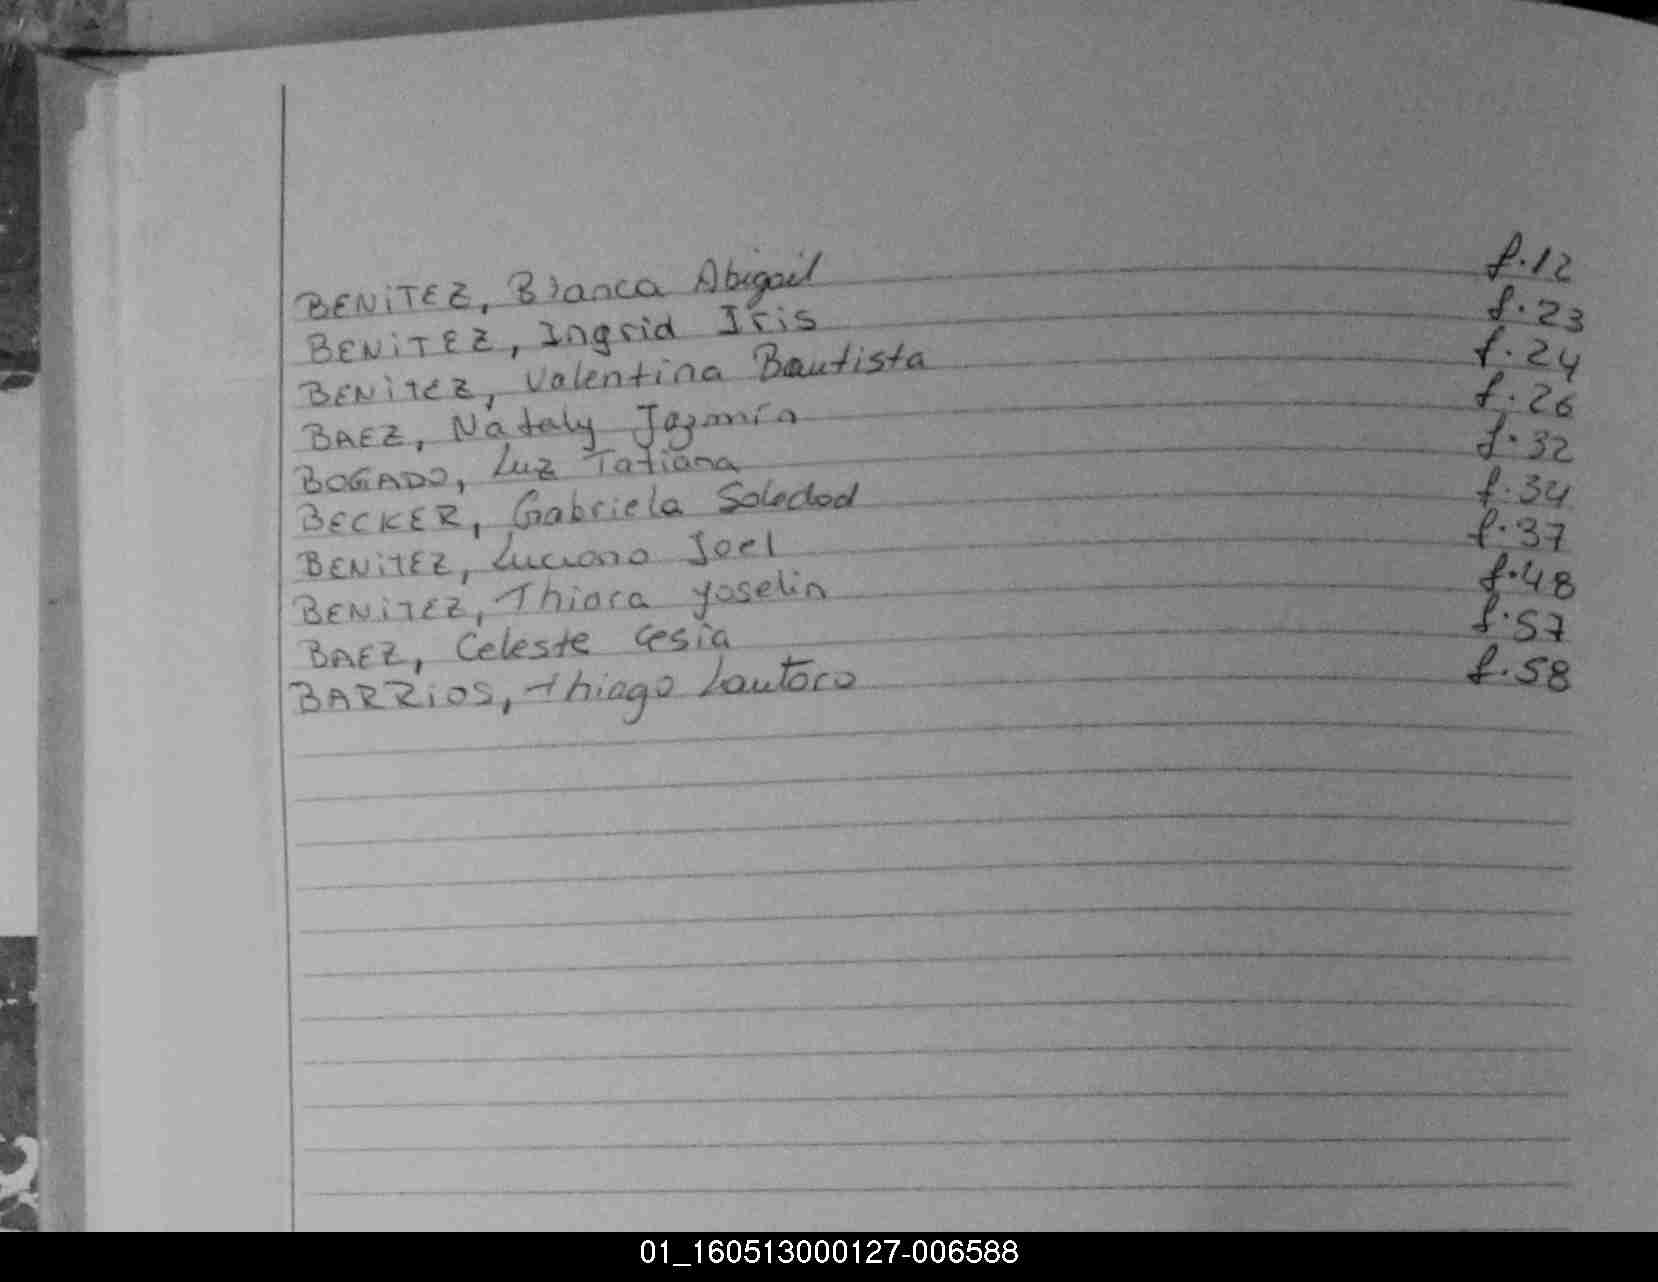 BENITEZ, Bianca Abigail f. 12
BENITEZ, Ingrid Iris f. 23
BENITEZ, Valentina Bautista f. 24
BAEZ, Nataly Jazmín f. 26
BOGADO, Luz Tatiana f. 32
BECKER, Gabriela Soledad f. 34
BENITEZ, Luciano Joel f. 37
BENITEZ, Thiara yoselin f. 48
BAEZ, Celeste Cesia f. 57
BARRIOS, Thiago Lautaro f. 58
01_160513000127-006588